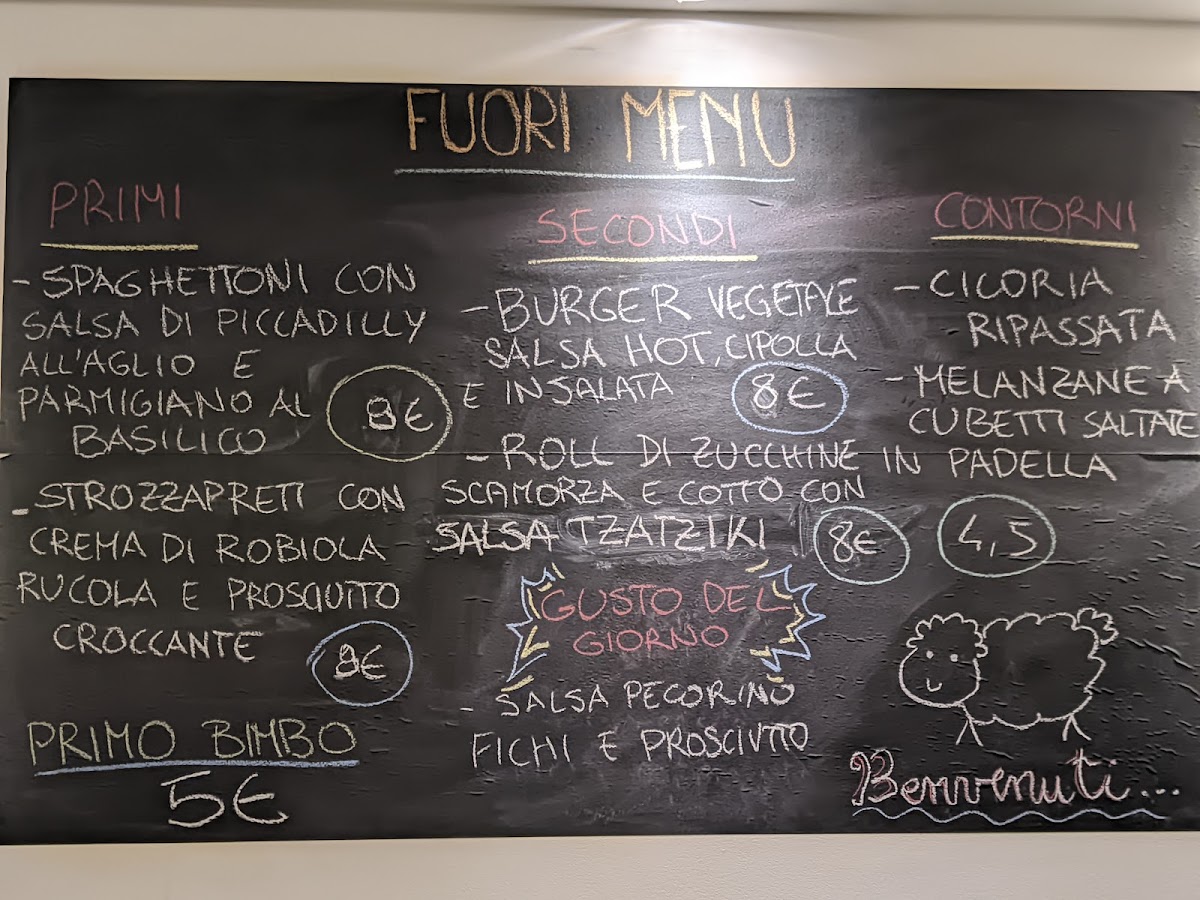 FUORI MENU
PRIMI
- SPAGHETTONI CON
SALSA DI PICCADILLY
ALL'AGLIO E
PARMIGIANO AL
BASILICO
8€
- STROZZAPRETI CON
CREMA DI ROBIOLA
RUCOLA E PROSCIUTTO
CROCCANTE
8€
PRIMO BIMBO
5€
SECONDI
- BURGER VEGETALE
SALSA HOT, CIPOLLA
E INSALATA
8€
- ROLL DI ZUCCHINE
SCAMORZA E COTTO CON
SALSA TZATZIKI
8€
GUSTO DEL
GIORNO
- SALSA PECORINO
FICHI E PROSCIUTTO
CONTORNI
- CICORIA
RIPASSATA
- MELANZANE A
CUBETTI SALTATE
IN PADELLA
4,5
Benvenuti...